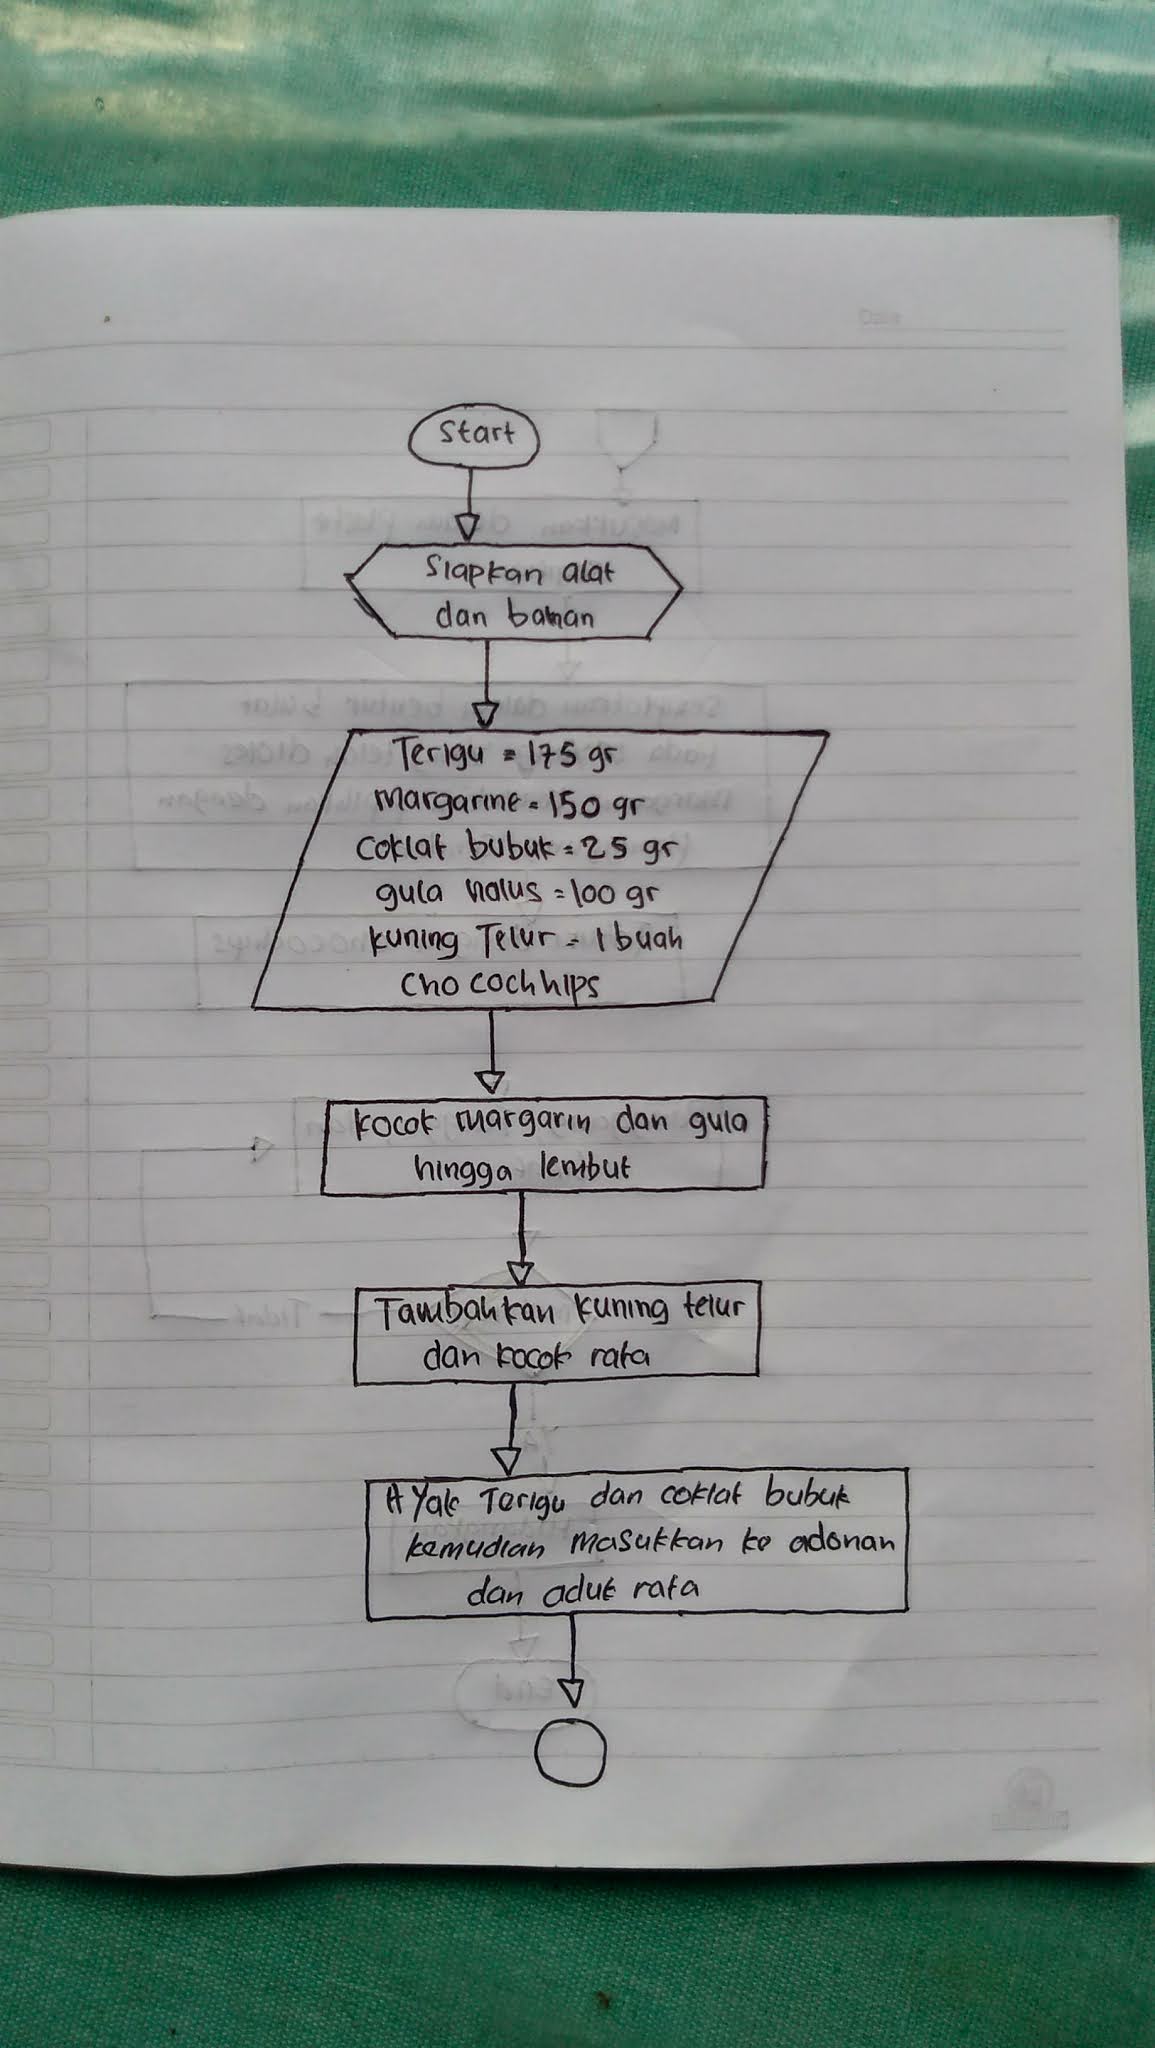 Date
Start
Siapkan alat
dan bahan
Terigu = 175 gr
margarine = 150 gr
coklat bubuk = 25 gr
gula halus = 100 gr
kuning Telur = 1 buah
cho cochhips
kocok margarin dan gula
hingga lembut
Tambahkan kuning telur
dan kocok rata
AYak Terigu dan coklat bubuk
kemudian masukkan ke adonan
dan aduk rata